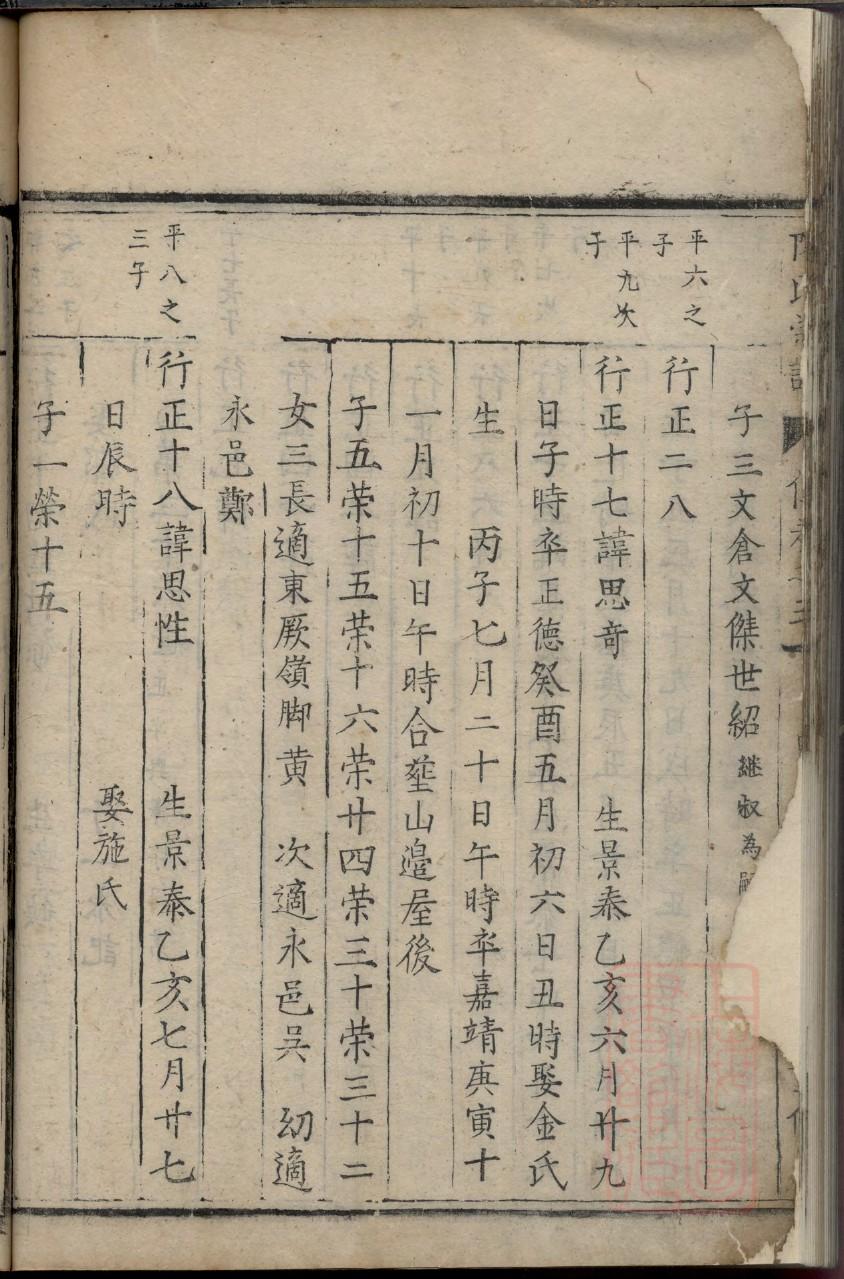 子三文倉文傑世紹継叔為嗣
平六之子
行正二八
平九次子
行正十七諱思竒 生景泰乙亥六月廿九
日子時卒正德癸酉五月初六日丑時娶金氏
生 丙子七月二十日午時卒嘉靖庚寅十
一月初十日午時合塟山邉屋後
子五荣十五荣十六荣廿四荣三十荣三十二
女三長適東厥嶺脚黄 次適永邑吳 㓜適
永邑鄭
平八之三子
行正十八諱思性 生景泰乙亥七月廿七
日辰時 娶施氏
子一榮十五